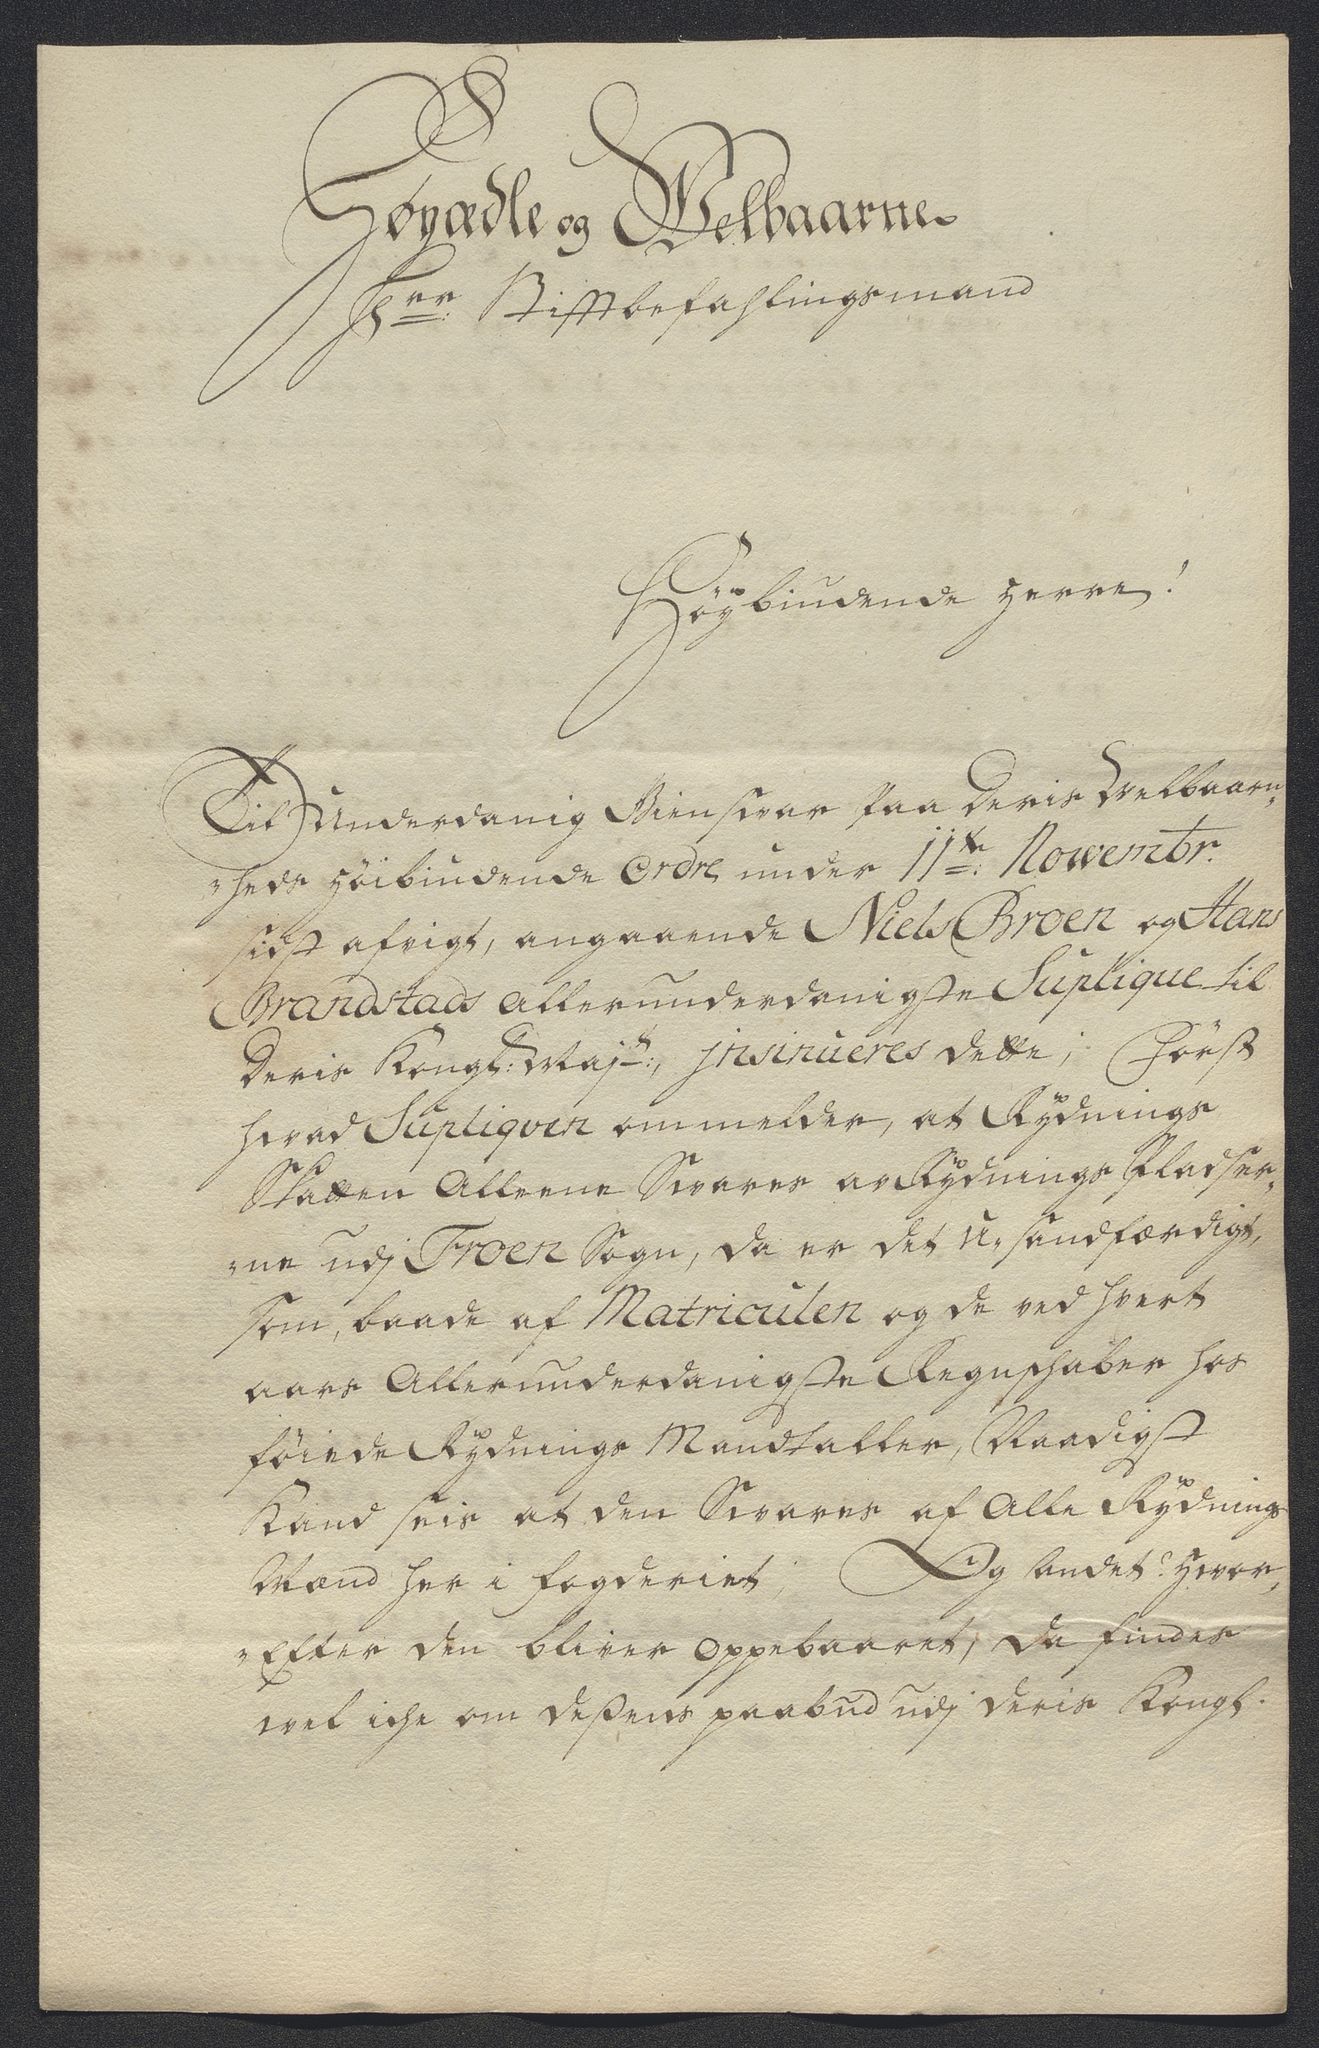 Høyædle og Welbaarne
Hrr: Stifftbefahlingsmand
Höÿbiudende Herre!
Til Underdanig Giensvar paa Deris Welbaarn„
„heds Höibiudende Ordre under 11te: Nowembr.
sidst afvigt, angaaende Niels Broen og Hans
Brandstads allerunderdanigste Suplique til
Deris Kongl: Maÿt:, jnsinueres dette; Först
hvad Supliqven ommelder, at Rÿdnings
Skatten Alleene Svares av Rÿdnings Pladser„
„ne udj Froen Sogn, da er det U„sandfærdigt,
som, baade af Matriculen og de ved hvert
aars Allerunderdanigste Regnschaber hos
föiede Rÿdnings Mandtaller, Naadigst
Kand seis at den Svares af Alle Rÿdnings
Mænd her i fogderiet; Og andet: Hvor„
„Efter den bliver oppebaaret, da findes
vel iche om deßens paabud udj deris Kongl.